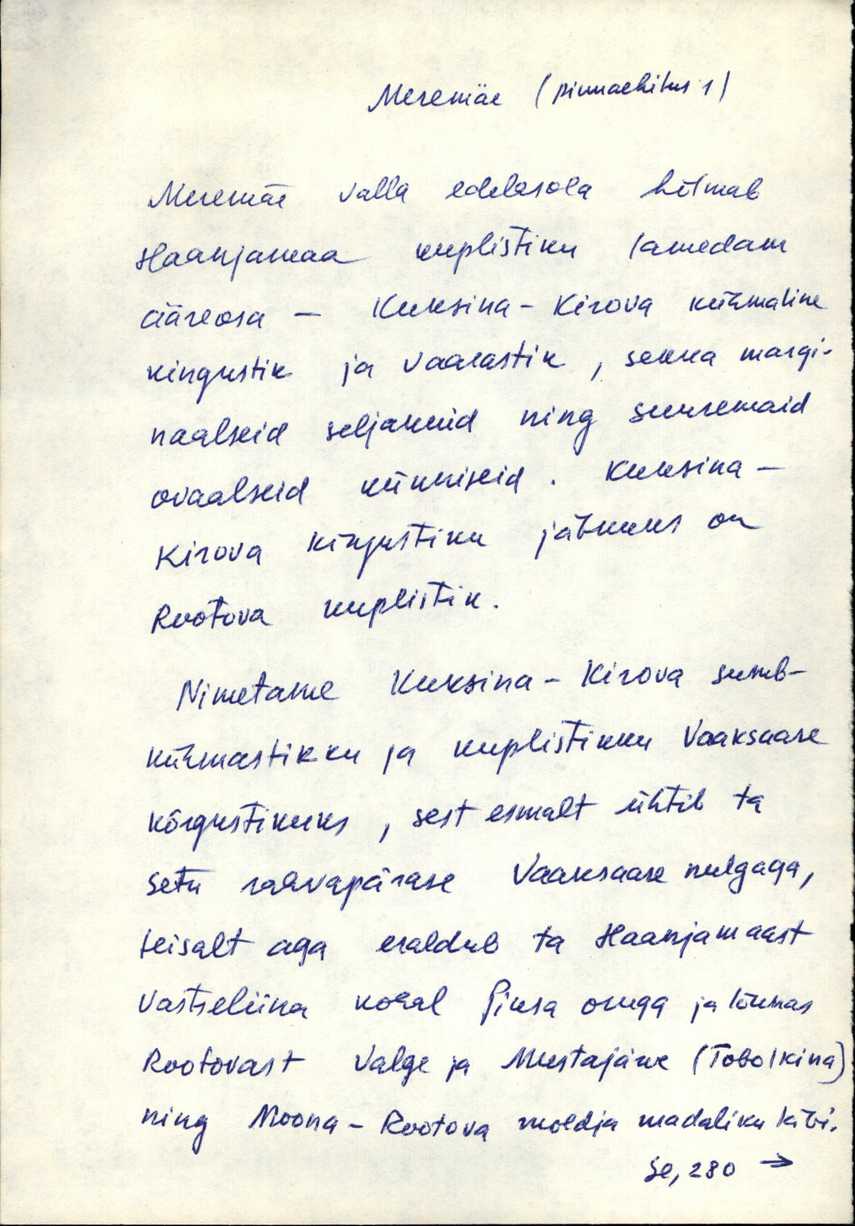 Meremäe (pinnaehitus 1)
Meremäe valla edelaosa hõlmab
Haanjamaa kuplistiku lamedam
ääreosa — Kuksina - Kirova kühmaline
kingustik ja vaarastik, sekka margi-
naalseid seljakuid ning suuremaid
ovaalseid künniseid. Kuksina —
Kirova kingustiku jätkuks on
Rootova kuplistik.
Nimetame Kuksina - Kirova
kühmastikku ja kuplistikku Vaaksaare
kõrgustikuks, sest esmalt ühtib ta
setu rahvapärase Vaaksaare nulgaga,
teisalt aga eraldub ta Haanjamaast
Vastseliina kohal Piusa oruga ja lõunas
Rootovast Valge ja Mustajärve (Tobolkina)
ning Moona - Rootova madaliku läbi.
Se, 280 →